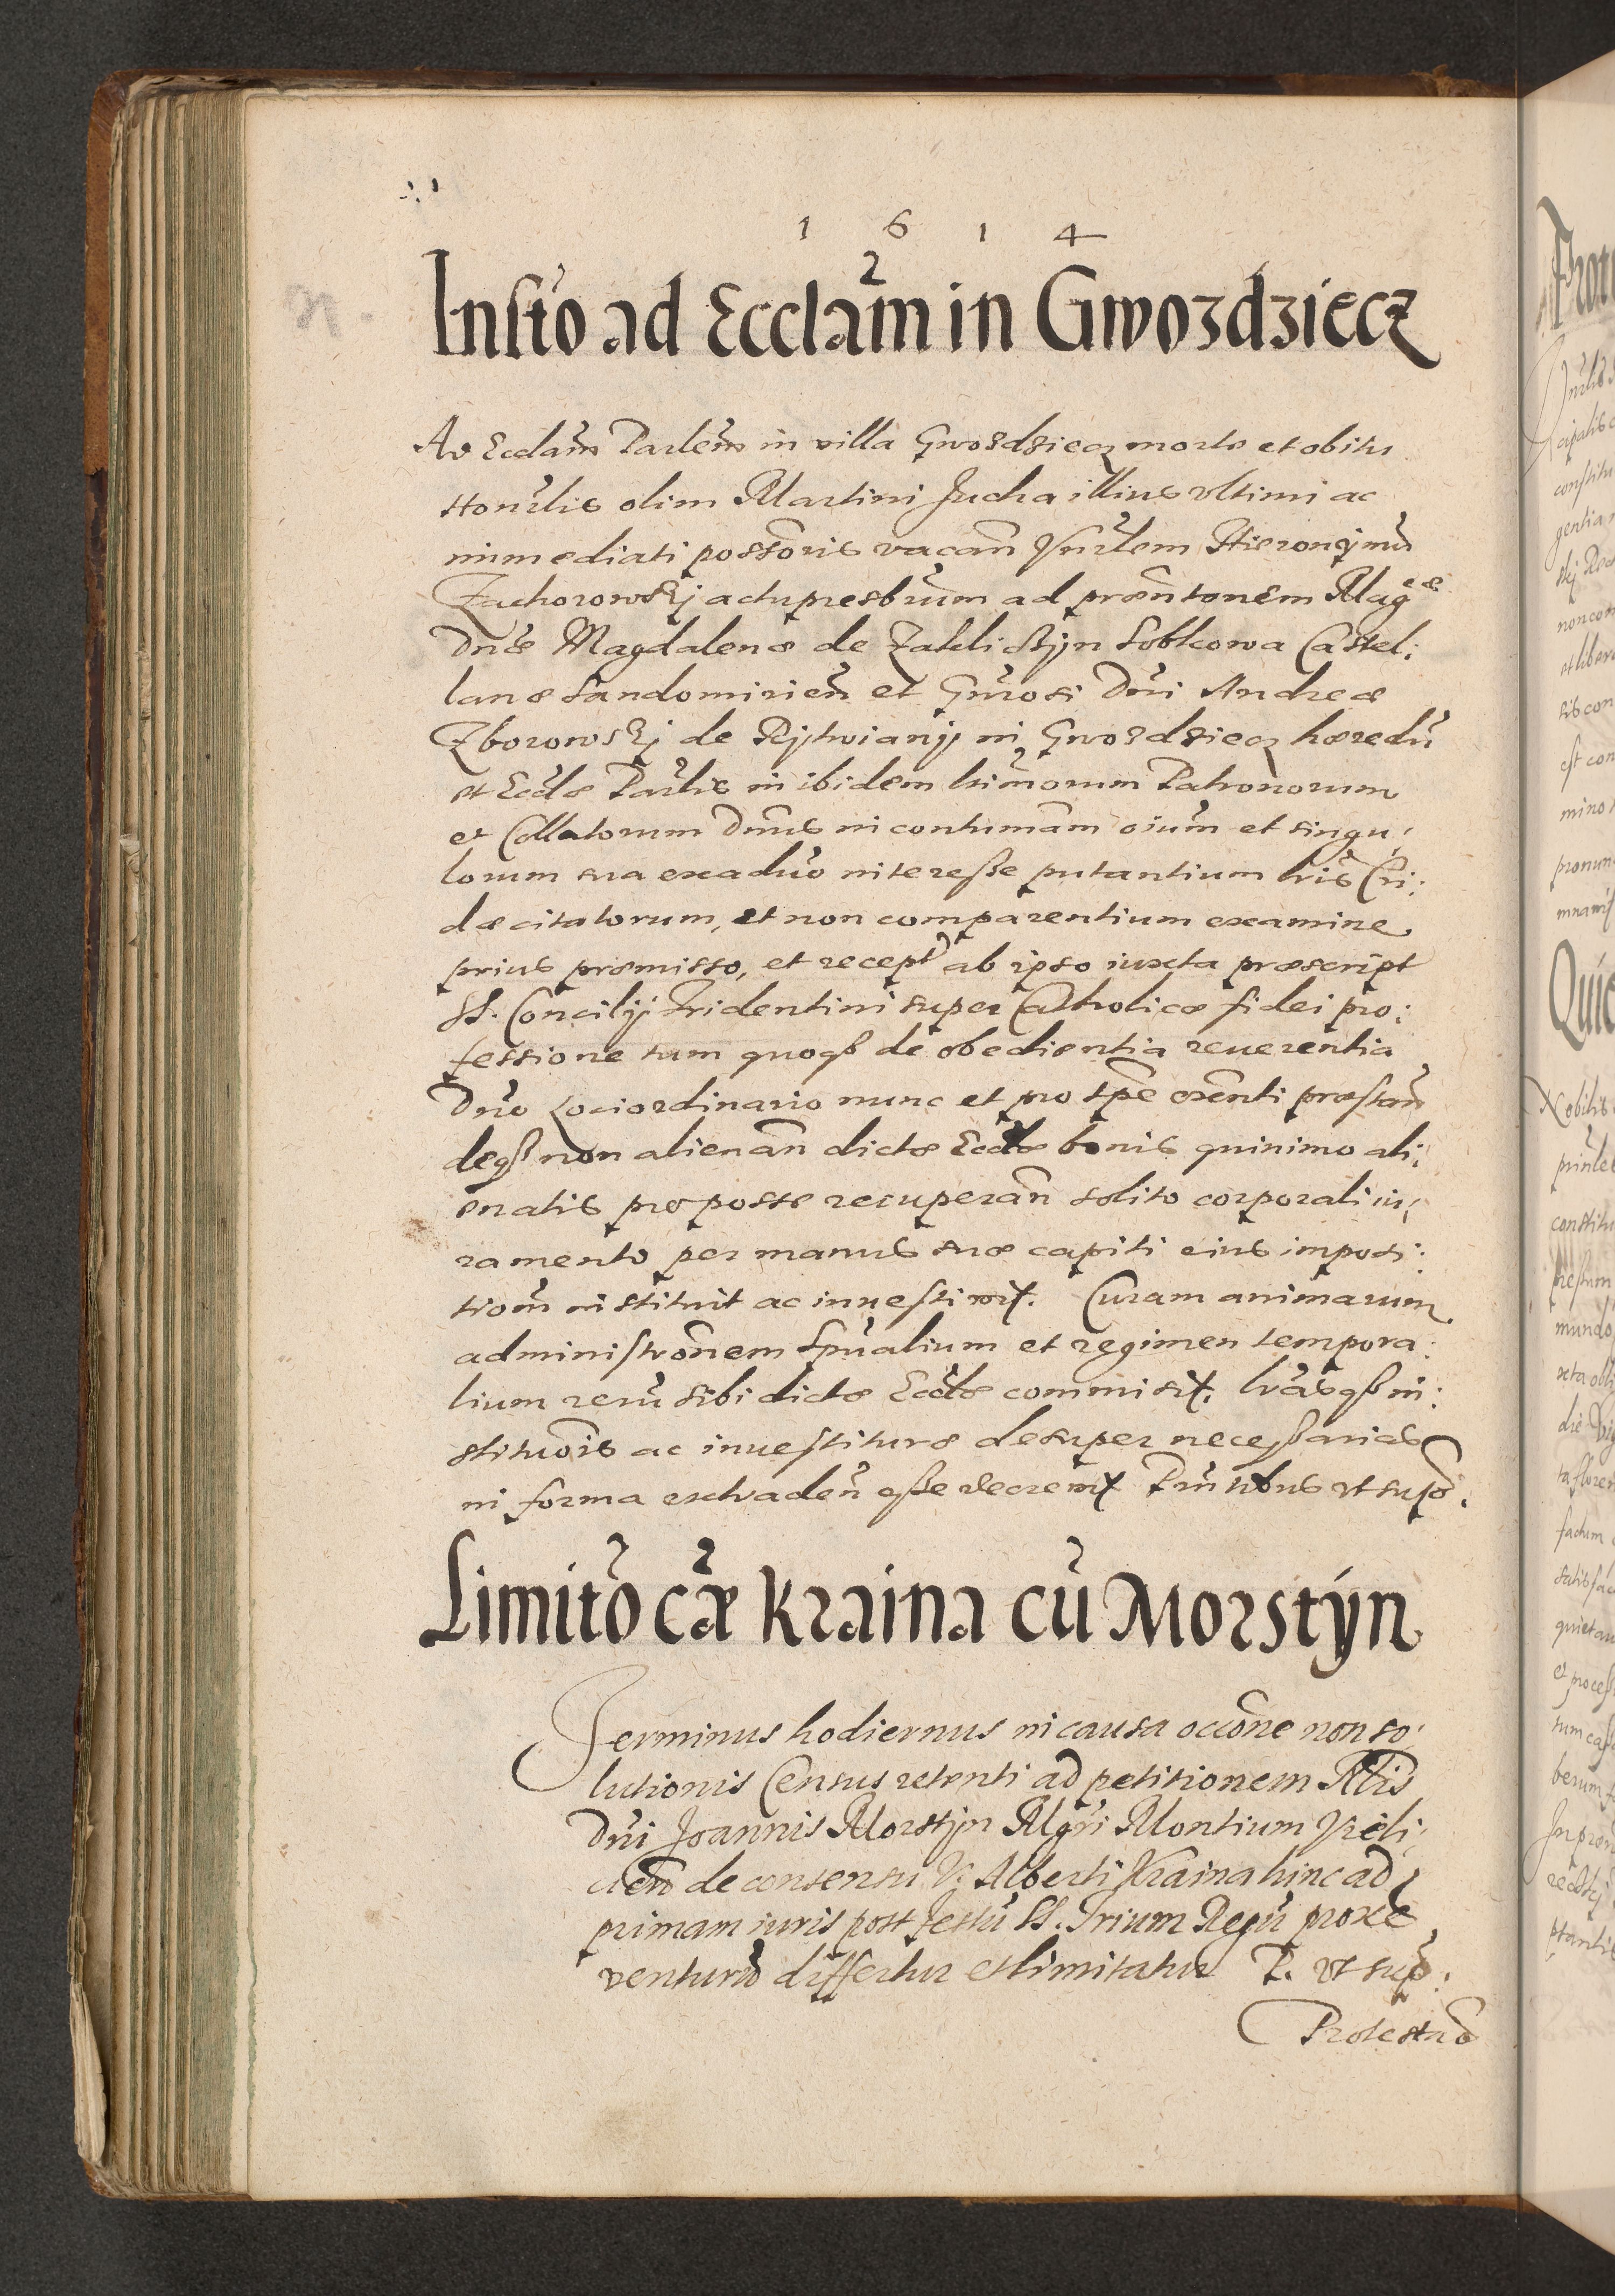 1 6 1 4
Insto ad Ecclam in Gwozdziecz
Ad Ecclam Parlem in villa Gwozdziecz morte et obitu
Honrlis olim Martini Jucha illius vltimi ac
immediati possoris vacan Vnrlem Hieronymu
Zachorowskj actu presbrum ad præntonem Magcæ
Dnæ Magdalenæ de Zakliczyn Sobkowa Castel:
lanæ Sandomirien et Gnrosi Dni Andreæ
Zborowskj de Rytwiany in Gwozdziecz hæredu
et Ecclæ Parlis in ibidem ltimorum Patronorum
et Collatorum Dnus in contumam oium et singu:
lorum sua exaduo interesse putantium lris Cri:
dæ citatorum, et non comparentium examine
prius præmisso, et recept ab ipso iuxta præscript
SS. Concilij Tridentini super Catholicæ fidei pro:
fessione tum quoqß de obedientia reuerentia
Dno Lociordinario nunc et pro tpe exenti præstan
deqß non alienan dictæ Ecclæ bonis quinimo ali:
enatis pro posse recuperan solito corporali iu:
ramento per manus suæ capiti eius imposi:
tiom instituit ac inuestiuit. Curam animarum
administronem Spualium et regimen tempora:
lium reru sibi dictæ Ecclæ commisit. lras qß in:
stituois ac inuestituræ desuper necessarias
in forma extraden esse decreuit Pntibus vt supo.
Limito cæ Kraina cu Morstyn
Terminus hodiernus in causa occone non so:
lutionis Census retenti ad petitionem Nlis
Dni Joannis Morstyn Mgri Montium Vieli:
cien de consensu V. Alberti Kraina hinc ad
primam iuris post festu SS. Trium Regu proxe
venturu differtur et limitatur P. vt sup.
Protestao